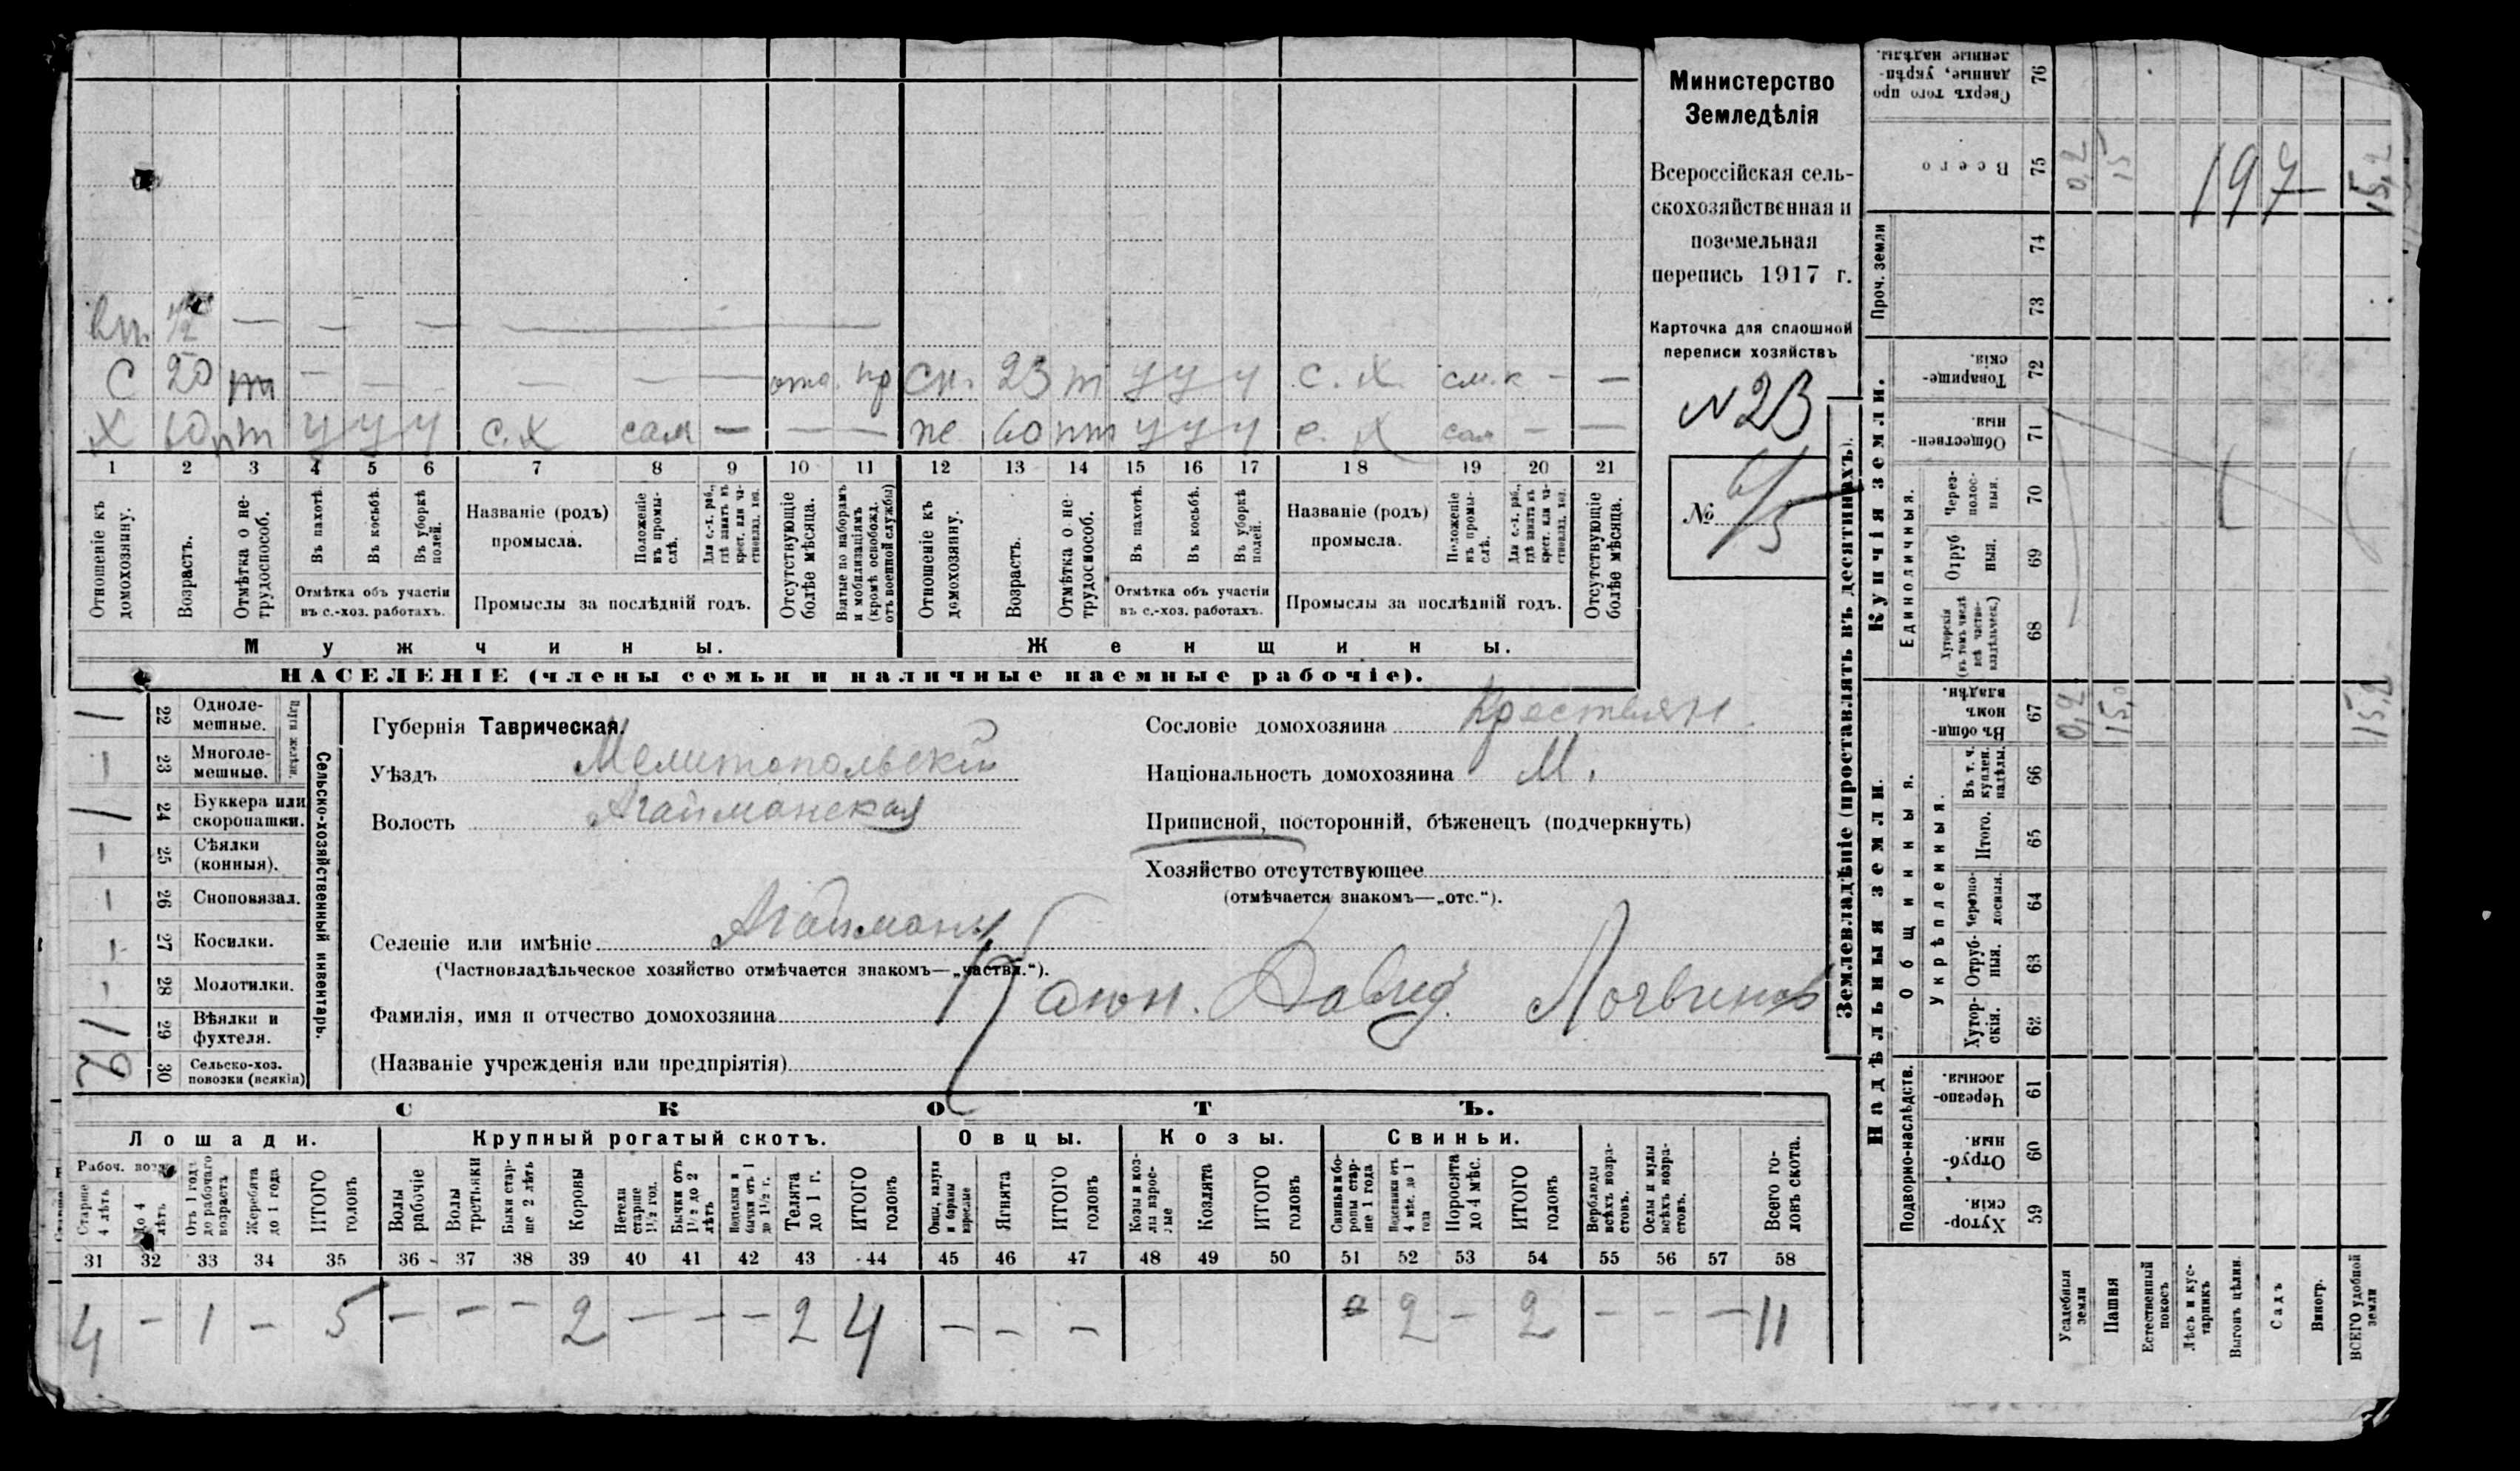 Министерство
Земледѣлія
Всероссійская сель-
скохозяйственная и
поземельная
перепись 1917 г.
Карточка для сплошной
переписи хозяйствъ
N 23
№ 6/5
вн. 1/2 — — — —
С 20 т — — — — — — отс. пр Сн. 23 т у у у с. х. см.к — —
Х 60 пт у у у с.х сам — — — же 60 пт у у у с. х сам — —
1 2 3 4 5 6 7 8 9 10 11 12 13 14 15 16 17 18 19 20 21
Отношеніе къ домохозяину.
Возрастъ.
Отмѣтка о не-трудоспособ.
Въ пахотѣ.
Въ косьбѣ.
Въ уборкѣ полей.
Отмѣтка объ участіи
въ с.-хоз. работахъ.
Названіе (родъ)
промысла.
Положеніе въ промы-слѣ.
Для с.-х. раб., гдѣ занятъ въ крест. или ча-стновлад. хоз.
Промыслы за послѣдній годъ.
Отсутствующіе болѣе мѣсяца.
Взятые по наборамъ и мобилизаціямъ (кромѣ освобожд. отъ военной службы)
Отношеніе къ домохозяину.
Возрастъ.
Отмѣтка о не-трудоспособ.
Въ пахотѣ.
Въ косьбѣ.
Въ уборкѣ полей.
Отмѣтка объ участіи
въ с.-хоз. работахъ.
Названіе (родъ)
промысла.
Положеніе въ промы-слѣ.
Для с.-х. раб., гдѣ занятъ въ крест. или ча-стновлад. хоз.
Промыслы за послѣдній годъ.
Отсутствующіе болѣе мѣсяца.
Мужчины.
Женщины.
НАСЕЛЕНІЕ (члены семьи и наличные наемные рабочіе).
Сельско-хозяйственный инвентарь.
Плуги желѣзн.
1 22 Одноле-мешные.
— 23 Многоле-мешные.
1 24 Буккера или скоропашки.
— 25 Сѣялки (конныя).
— 26 Сноповязал.
— 27 Косилки.
— 28 Молотилки.
1 29 Вѣялки и фухтеля.
2 30 Сельско-хоз. повозки (всякія)
Губернія Таврическая.
Уѣздъ Мелитопольскій
Волость Агайманская
Сословіе домохозяина Крестьян.
Національность домохозяина М.
Приписной, посторонній, бѣженецъ (подчеркнуть)
Хозяйство отсутствующее
(отмѣчается знакомъ—„отс.“).
Селеніе или имѣніе Агайманъ
(Частновладѣльческое хозяйство отмѣчается знакомъ—„частвл.“).
Фамилія, имя и отчество домохозяина Давид. Логвинов
(Названіе учрежденія или предпріятія)
СКОТЪ.
Лошади. Крупный рогатый скотъ. Овцы. Козы. Свиньи.
Рабоч. возр.
Старше 4 лѣтъ
До 4 лѣтъ
Отъ 1 года до рабочаго возраста
Жеребята до 1 года
ИТОГО головъ
Волы рабочіе
Волы третьяки
Быки стар-ше 2 лѣтъ
Коровы
Нетели старше 1½ год.
Бычки отъ 1½ до 2 лѣтъ
Нетелки и бычки отъ 1 до 1½ г.
Телята до 1 г.
ИТОГО головъ
Овцы, валухи и бараны взрослые
Ягнята
ИТОГО головъ
Козы и коз-лы взрос-лые
Козлята
ИТОГО головъ
Свиньи и бо-ровы стар-ше 1 года
Подсвинки отъ 4 мѣс. до 1 года
Поросята до 4 мѣс.
ИТОГО головъ
Верблюды всѣхъ возра-стовъ.
Ослы и мулы всѣхъ возра-стовъ.
Всего го-ловъ скота.
31 32 33 34 35 36 37 38 39 40 41 42 43 44 45 46 47 48 49 50 51 52 53 54 55 56 57 58
4 — 1 — 5 — — — 2 — — — 2 4 — — — 2 — 2 — — — 11
Землевладѣніе (проставлять въ десятинахъ).
Сверхъ того про-данные, укрѣп-ленные надѣлы. 76
Всего 75 0,2 15 15,2
197
Проч. земли 74 73
Купчія земли.
Товарище-скія. 72
Обществен-ныя. 71
Единоличныя.
Через-полос-ныя. 70
Отруб-ныя. 69
Хуторскія (въ томъ числѣ всѣ частно-владѣльческ.) 68
Надѣльныя земли.
Общинныя.
Въ общин-номъ владѣн. 67 0,2 15,0 15,2
Укрѣпленныя.
Въ т. ч. куплен. надѣлы. 66
Итого. 65
Черезпо-лосныя. 64
Отруб-ныя. 63
Хутор-скія. 62
Подворно-наслѣдств.
Черезпо-лосныя. 61
Отруб-ныя. 60
Хутор-скія. 59
Усадебныя земли
Пашня
Естественный покосъ
Лѣсъ и кус-тарникъ
Выгонъ цѣлин.
Садъ
Виногр.
ВСЕГО удобной земли